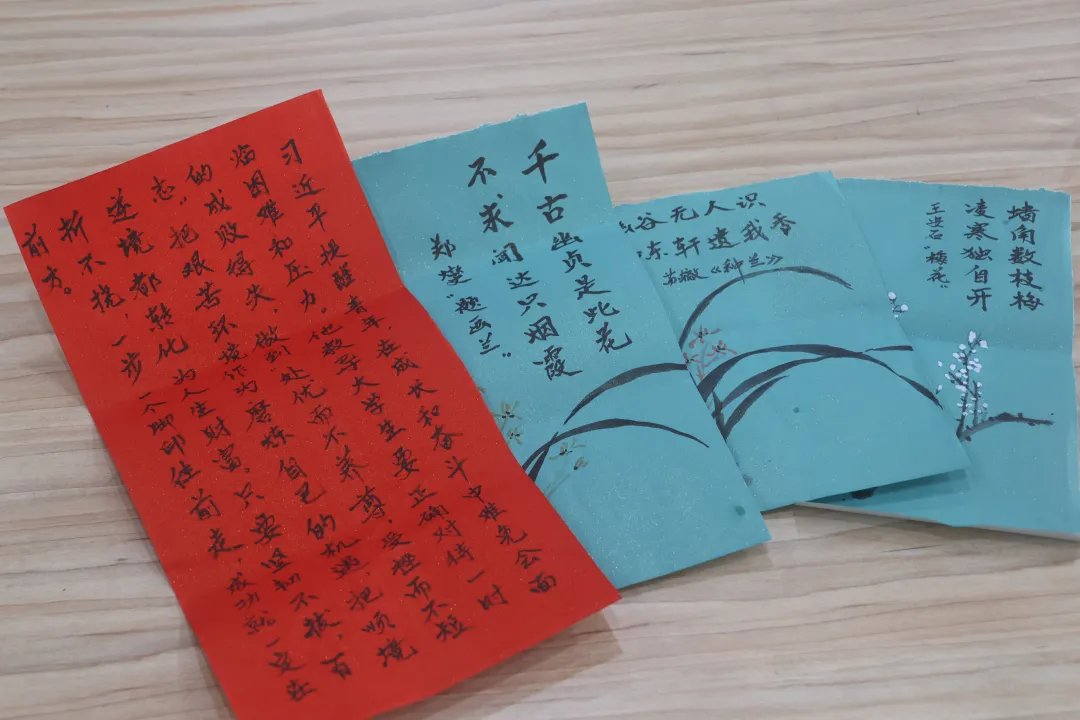 习近平提醒青年,在成长和奋斗中难免会面
临困难和压力,他教导大学生要正确对待一时
的成败得失,做到“处优而不养尊,受挫而不短
志”把艰苦环境作为磨炼自己的机遇,把顺境
逆境都转化为人生财富。只要坚韧不拔,百
折不挠,一步一个脚印往前走,成功就一定在
前方。
千古幽贞是此花
不求闻达只烟霞
郑燮“题画兰”
谷无人识
东轩遗我香
苏辙《种兰》
墙角数枝梅
凌寒独自开
王安石“梅花”